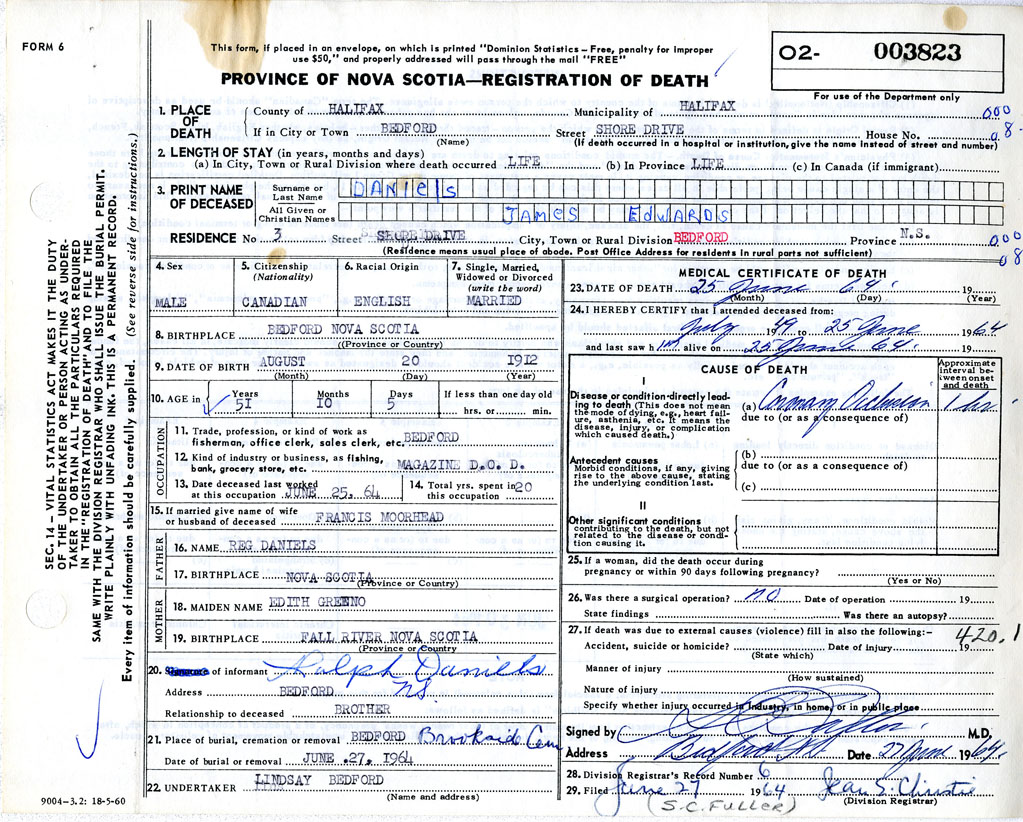 FORM 6
This form, if placed in an envelope, on which is printed "Dominion Statistics – Free, penalty for improper
use $50," and properly addressed will pass through the mail "FREE"
PROVINCE OF NOVA SCOTIA—REGISTRATION OF DEATH
02- 003823
For use of the Department only
SEC. 14 – VITAL STATISTICS ACT MAKES IT THE DUTY
OF THE UNDERTAKER OR PERSON ACTING AS UNDER-
TAKER TO OBTAIN ALL THE PARTICULARS REQUIRED
IN THE "REGISTRATION OF DEATH" AND TO FILE THE
SAME WITH THE DIVISION REGISTRAR WHO SHALL ISSUE THE BURIAL PERMIT.
WRITE PLAINLY WITH UNFADING INK. THIS IS A PERMANENT RECORD.
Every item of information should be carefully supplied. (See reverse side for instructions.)
1. PLACE OF DEATH
County of HALIFAX Municipality of HALIFAX 000
If in City or Town BEDFORD Street SHORE DRIVE House No. 08-
(Name) (If death occurred in a hospital or institution, give the name instead of street and number)
2. LENGTH OF STAY (in years, months and days)
(a) In City, Town or Rural Division where death occurred LIFE (b) In Province LIFE (c) In Canada (if immigrant)
3. PRINT NAME OF DECEASED
Surname or Last Name DANIELS
All Given or Christian Names JAMES EDWARDS
RESIDENCE No 3 Street SHORE DRIVE City, Town or Rural Division BEDFORD Province N.S. 000
(Residence means usual place of abode. Post Office Address for residents in rural parts not sufficient) 08
4. Sex
MALE
5. Citizenship (Nationality)
CANADIAN
6. Racial Origin
ENGLISH
7. Single, Married, Widowed or Divorced (write the word)
MARRIED
8. BIRTHPLACE BEDFORD NOVA SCOTIA
((Province or Country)
9. DATE OF BIRTH AUGUST 20 1912
(Month) (Day) (Year)
10. AGE in Years Months Days If less than one day old
51 10 5 hrs. or min.
OCCUPATION
11. Trade, profession, or kind of work as
fisherman, office clerk, sales clerk, etc. BEDFORD
12. Kind of industry or business, as fishing,
bank, grocery store, etc. MAGAZINE D.O.D.
13. Date deceased last worked
at this occupation JUNE 25, 64
14. Total yrs. spent in
this occupation 20
15. If married give name of wife
or husband of deceased FRANCIS MOORHEAD
FATHER
16. NAME REG DANIELS
17. BIRTHPLACE NOVA SCOTIA
(Province or Country)
MOTHER
18. MAIDEN NAME EDITH GREENO
19. BIRTHPLACE FALL RIVER NOVA SCOTIA
(Province or Country
20. of informant Ralph Daniels
Address BEDFORD NS
Relationship to deceased BROTHER
21. Place of burial, cremation or removal BEDFORD Brookside Cem
Date of burial or removal JUNE .27, 1964
22. UNDERTAKER LINDSAY BEDFORD
(Name and address)
9004–3.2: 18-5-60
MEDICAL CERTIFICATE OF DEATH
23. DATE OF DEATH 25 June 64. 19
(Month) (Day) (Year)
24. I HEREBY CERTIFY that I attended deceased from:
July 1949 to 25 June 1964
and last saw him alive on 25 June 64. 19
CAUSE OF DEATH
Approximate interval between onset and death
I
Disease or condition directly lead-
ing to death (This does not mean
the mode of dying, e.g., heart fail-
ure, asthenia, etc. It means the
disease, injury, or complication
which caused death.)
(a) Coronary Occlusion 1 hr
due to (or as a consequence of)
Antecedent causes
Morbid conditions, if any, giving
rise to the above cause, stating
the underlying condition last.
(b)
due to (or as a consequence of)
(c)
II
Other significant conditions
contributing to the death, but not
related to the disease or condi-
tion causing it.
25. If a woman, did the death occur during
pregnancy or within 90 days following pregnancy?
(Yes or No)
26. Was there a surgical operation? NO Date of operation 19
State findings Was there an autopsy?
27. If death was due to external causes (violence) fill in also the following:– 420.1
Accident, suicide or homicide? Date of injury 19
(State which)
Manner of injury
(How sustained)
Nature of injury
Specify whether injury occurred in industry, in home, or in public place
Signed by M.D.
Address Bedford NS Date 27 June 1964
28. Division Registrar's Record Number 6
29. Filed June 27 1964 Jean S. Christie
(S.C. FULLER) (Division Registrar)